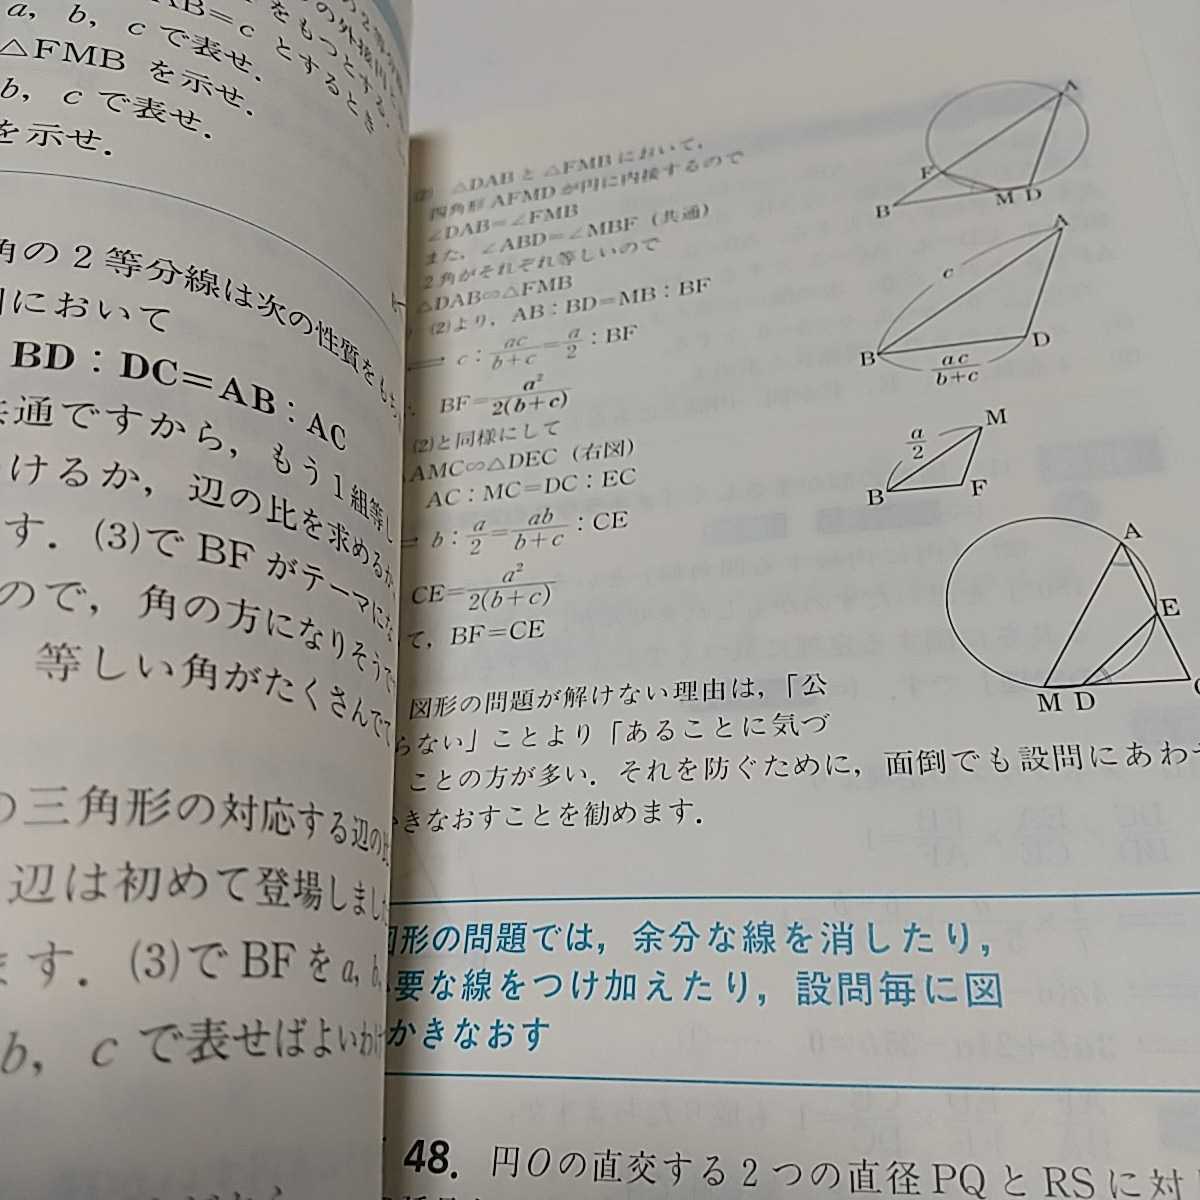 AB=c とするとき
a, b, c で表せ.
△FMB を示せ.
b, c で表せ.
を示せ.
角の2等分線は次の性質をもち
において
BD:DC=AB:AC
共通ですから,もう1組等し
けるか,辺の比を求めるか
す. (3)で BF がテーマにな
ので,角の方になりそうで
等しい角がたくさんでて
の三角形の対応する辺の比
辺は初めて登場しました
ます. (3)で BF を a, b,
b, c で表せばよいわけ
(2) △DAB と △FMB において,
四角形 AFMD が円に内接するので
∠DAB=∠FMB
また, ∠ABD=∠MBF(共通)
2角がそれぞれ等しいので
△DAB∽△FMB
(2)より, AB:BD=MB:BF
c:ac/(b+c)=a/2:BF
BF=a²/2(b+c)
(2)と同様にして
△AMC∽△DEC(右図)
AC:MC=DC:EC
b:a/2=ab/(b+c):CE
CE=a²/2(b+c)
て, BF=CE
A
F
B
M D
A
c
B
D
ac/(b+c)
M
a/2
B
F
A
E
M D
図形の問題が解けない理由は,「公
らない」ことより「あることに気づ
ことの方が多い. それを防ぐために, 面倒でも設問にあわせ
きなおすことを勧めます.
図形の問題では, 余分な線を消したり,
要な線をつけ加えたり, 設問毎に図
かきなおす
48. 円Oの直交する2つの直径 PQ と RS に対